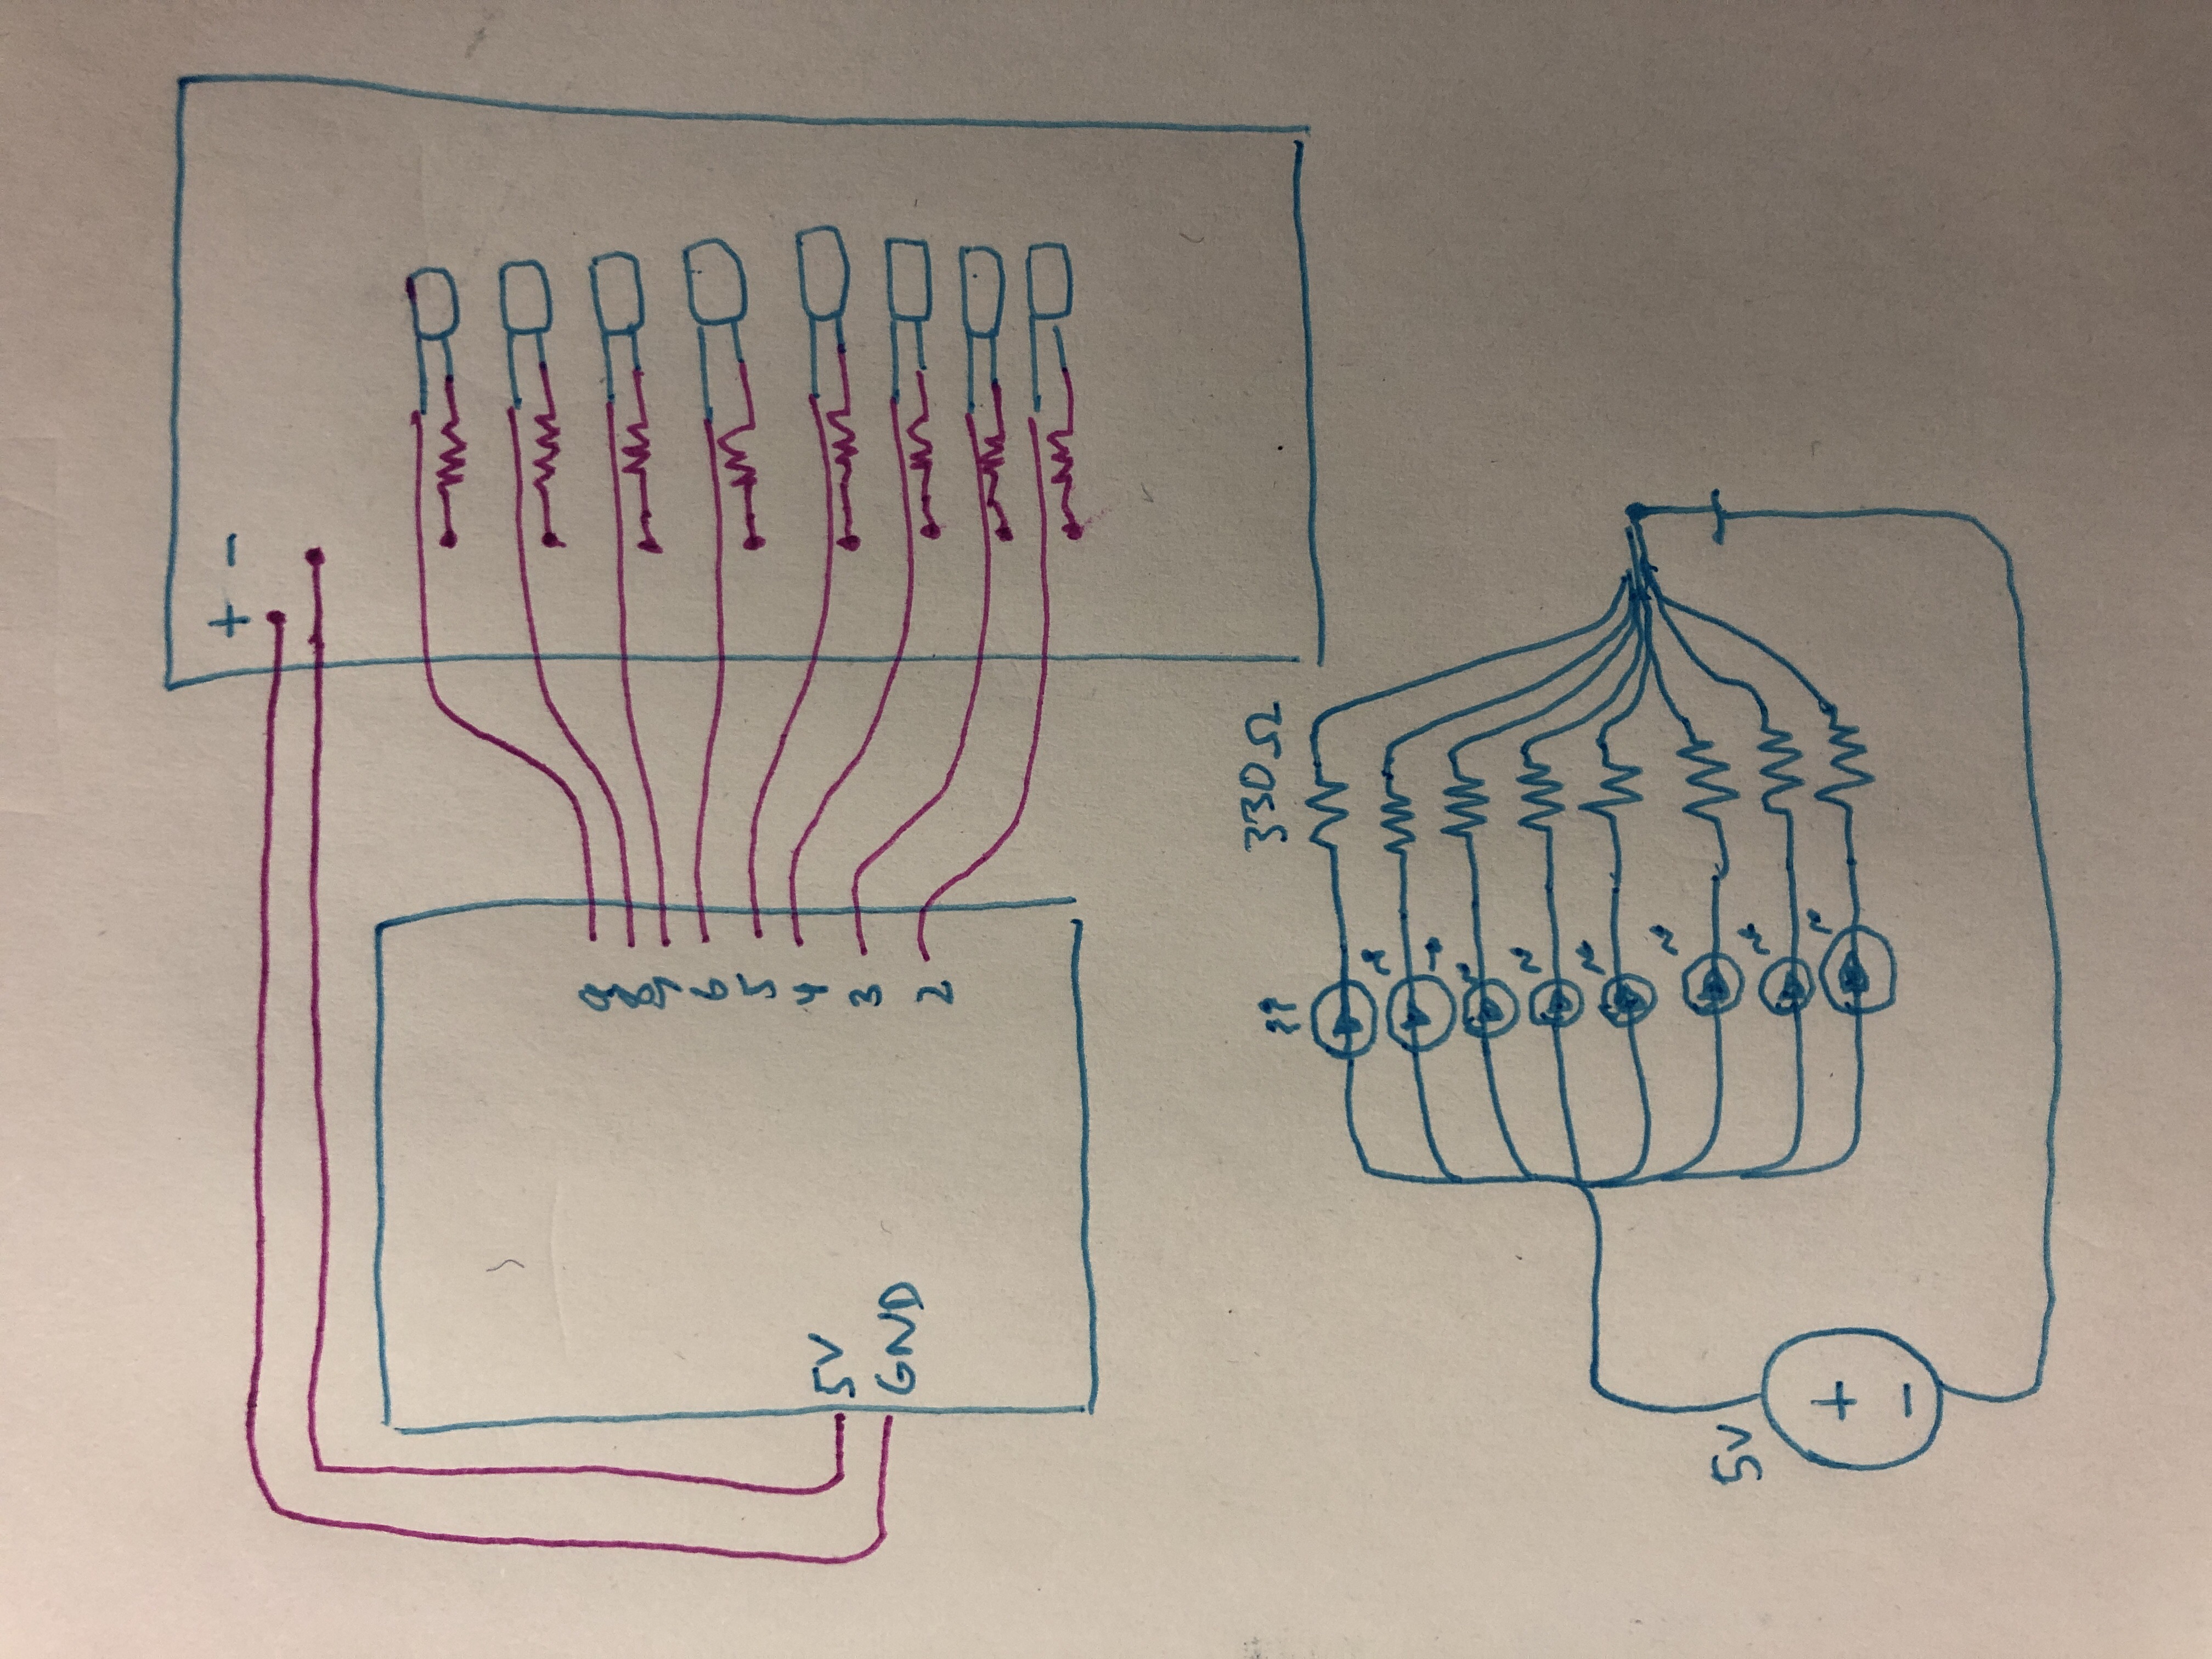 + -
9
8
7
6
5
4
3
2
5V
GND
330Ω
5V
+
-